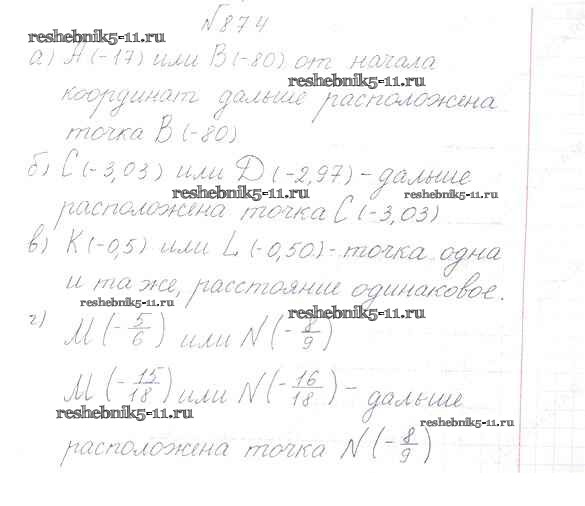 №874
reshebnik5-11.ru
а) А(-17) или В(-80) от начала
reshebnik5-11.ru
координат дальше расположена
точка В(-80)
б) С(-3,03) или D(-2,97) - дальше
reshebnik5-11.ru
reshebnik5-11.ru
расположена точка С(-3,03)
в) K(-0,5) или L(-0,50) - точка одна
и та же, расстояние одинаковое.
reshebnik5-11.ru
reshebnik5-11.ru
г) M(-5/6) или N(-8/9)
M(-15/18) или N(-16/18) - дальше
reshebnik5-11.ru
reshebnik5-11.ru
расположена точка N(-8/9)